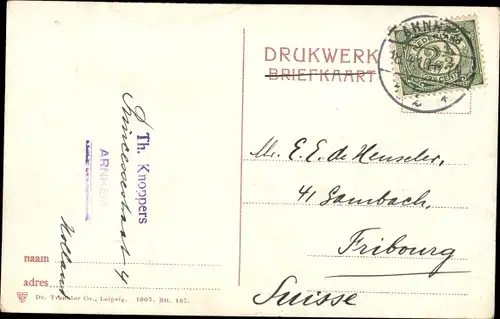 DRUKWERK
BRIEFKAART
ARNHEM
NEDERLAND
2½
CENT
Mr. E. E. de Heuseler,
41 Gambach,
Fribourg
Suisse
Th. Knoppers
Prinsessestraat 4
ARNHEM
Holland
naam
adres
Dr. Trenkler Co., Leipzig. 1907. Btt. 167.